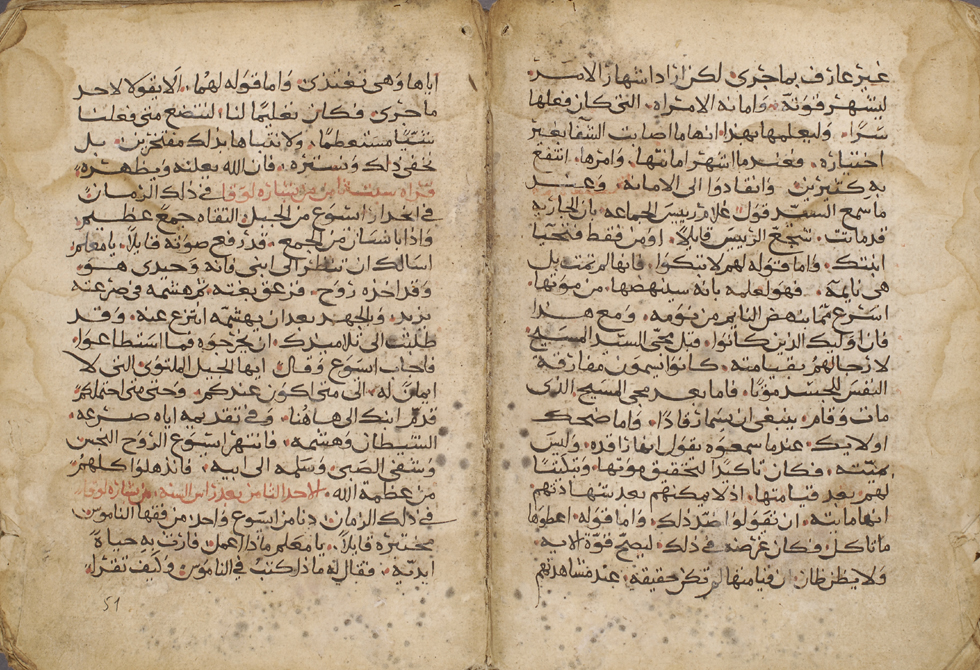 غير عارف بما جرى لكن اراد اشهار الامر
ليشهر قوته واما نه الامراه التي كان فعلها
سرا وليعلمها بهذا انهاما اصابت الشفا بغير
اختياره فعندما اشهر امانتها وامرها انتفع
به كثيرين وانقادوا الى الامانه وعند
ما سمع السيد قول غلام رييس الجماعه بان الجاريه
قد ماتت شجع الرييس قايلا اومن فقط فتحيا
ابنتك واما قوله لهم لا تبكوا فانها لم تمت بل
هي نايمه فهو لعلمه بانه سينهضها من موتها
اسرع مما ينهض النايم من نومه ومع هذا
فان اوليك الذين كانوا قبل مجي السيد المسيح
لا رجا لهم بقيامته كانوا يسمون مفارقة
النفس للجسد موتا فاما بعد مجي المسيح الذي
مات وقام ينبغي ان يسما رقادا واما ضحك
اولايك عندما سمعوه يقول انها راقده وليس
بميته فكان تاكيدا لتحقيق موتها وتبكيتا
لهم بعد قيامتها اذ لا يمكنهم بعد شهادتهم
انها ماتت ان يقولوا ضد ذلك واما قوله اعطوها
ما تاكل فكان غرضه في ذلك ليصح قوة الايه
ولا يظن ظان ان قيامتها لم تكن حقيقه عند مشاهدتهم
اياها وهي تغتذي واما قوله لهما الا يقولا لاحد
ما جرى فكان تعليما لنا لنتضع متى فعلنا
شيا مستعظما ولا نتباها بذلك مفتخرين بل
نخفي ذلك ونستره فان الله يعلنه ويظهره
في ذلك الزمان
في انحدار ايسوع من الجبل التقاه جمع عظيم
واذا بانسان من الجمع قد رفع صوته قايلا يا معلم
اسالك ان تنظر الى ابني فانه وحيدي هو
وقد اخذه روح فزعق بغته ثم هشمه في صرعته
يزبد وبالجهد بعد ان يهشمه انتزع عنه وقد
طلبت الى تلاميدك ان يخرجوه فما استطاعوا
فاجاب ايسوع وقال ايها الجيل الملتوي التي لا
ايمان له الى متى اكون عندكم وحتى متى احتملكم
قدم ابنك الى هاهنا وفي تقديمه اياه صرعه
الشيطان وهشمه فانتهر ايسوع الروح النجس
وشفى الصبي وسلمه الى ابيه فانذهلوا كلهم
من عظمة الله الاحد الثامن بعد راس السنه من بشارة لوقا
في ذلك الزمان دنا من ايسوع واحد من فقها الناموس
مختبره قايلا يا معلم ماذا اعمل فارث به حياة
ابديه فقال له ماذا كتب في الناموس وكيف تقرا
51